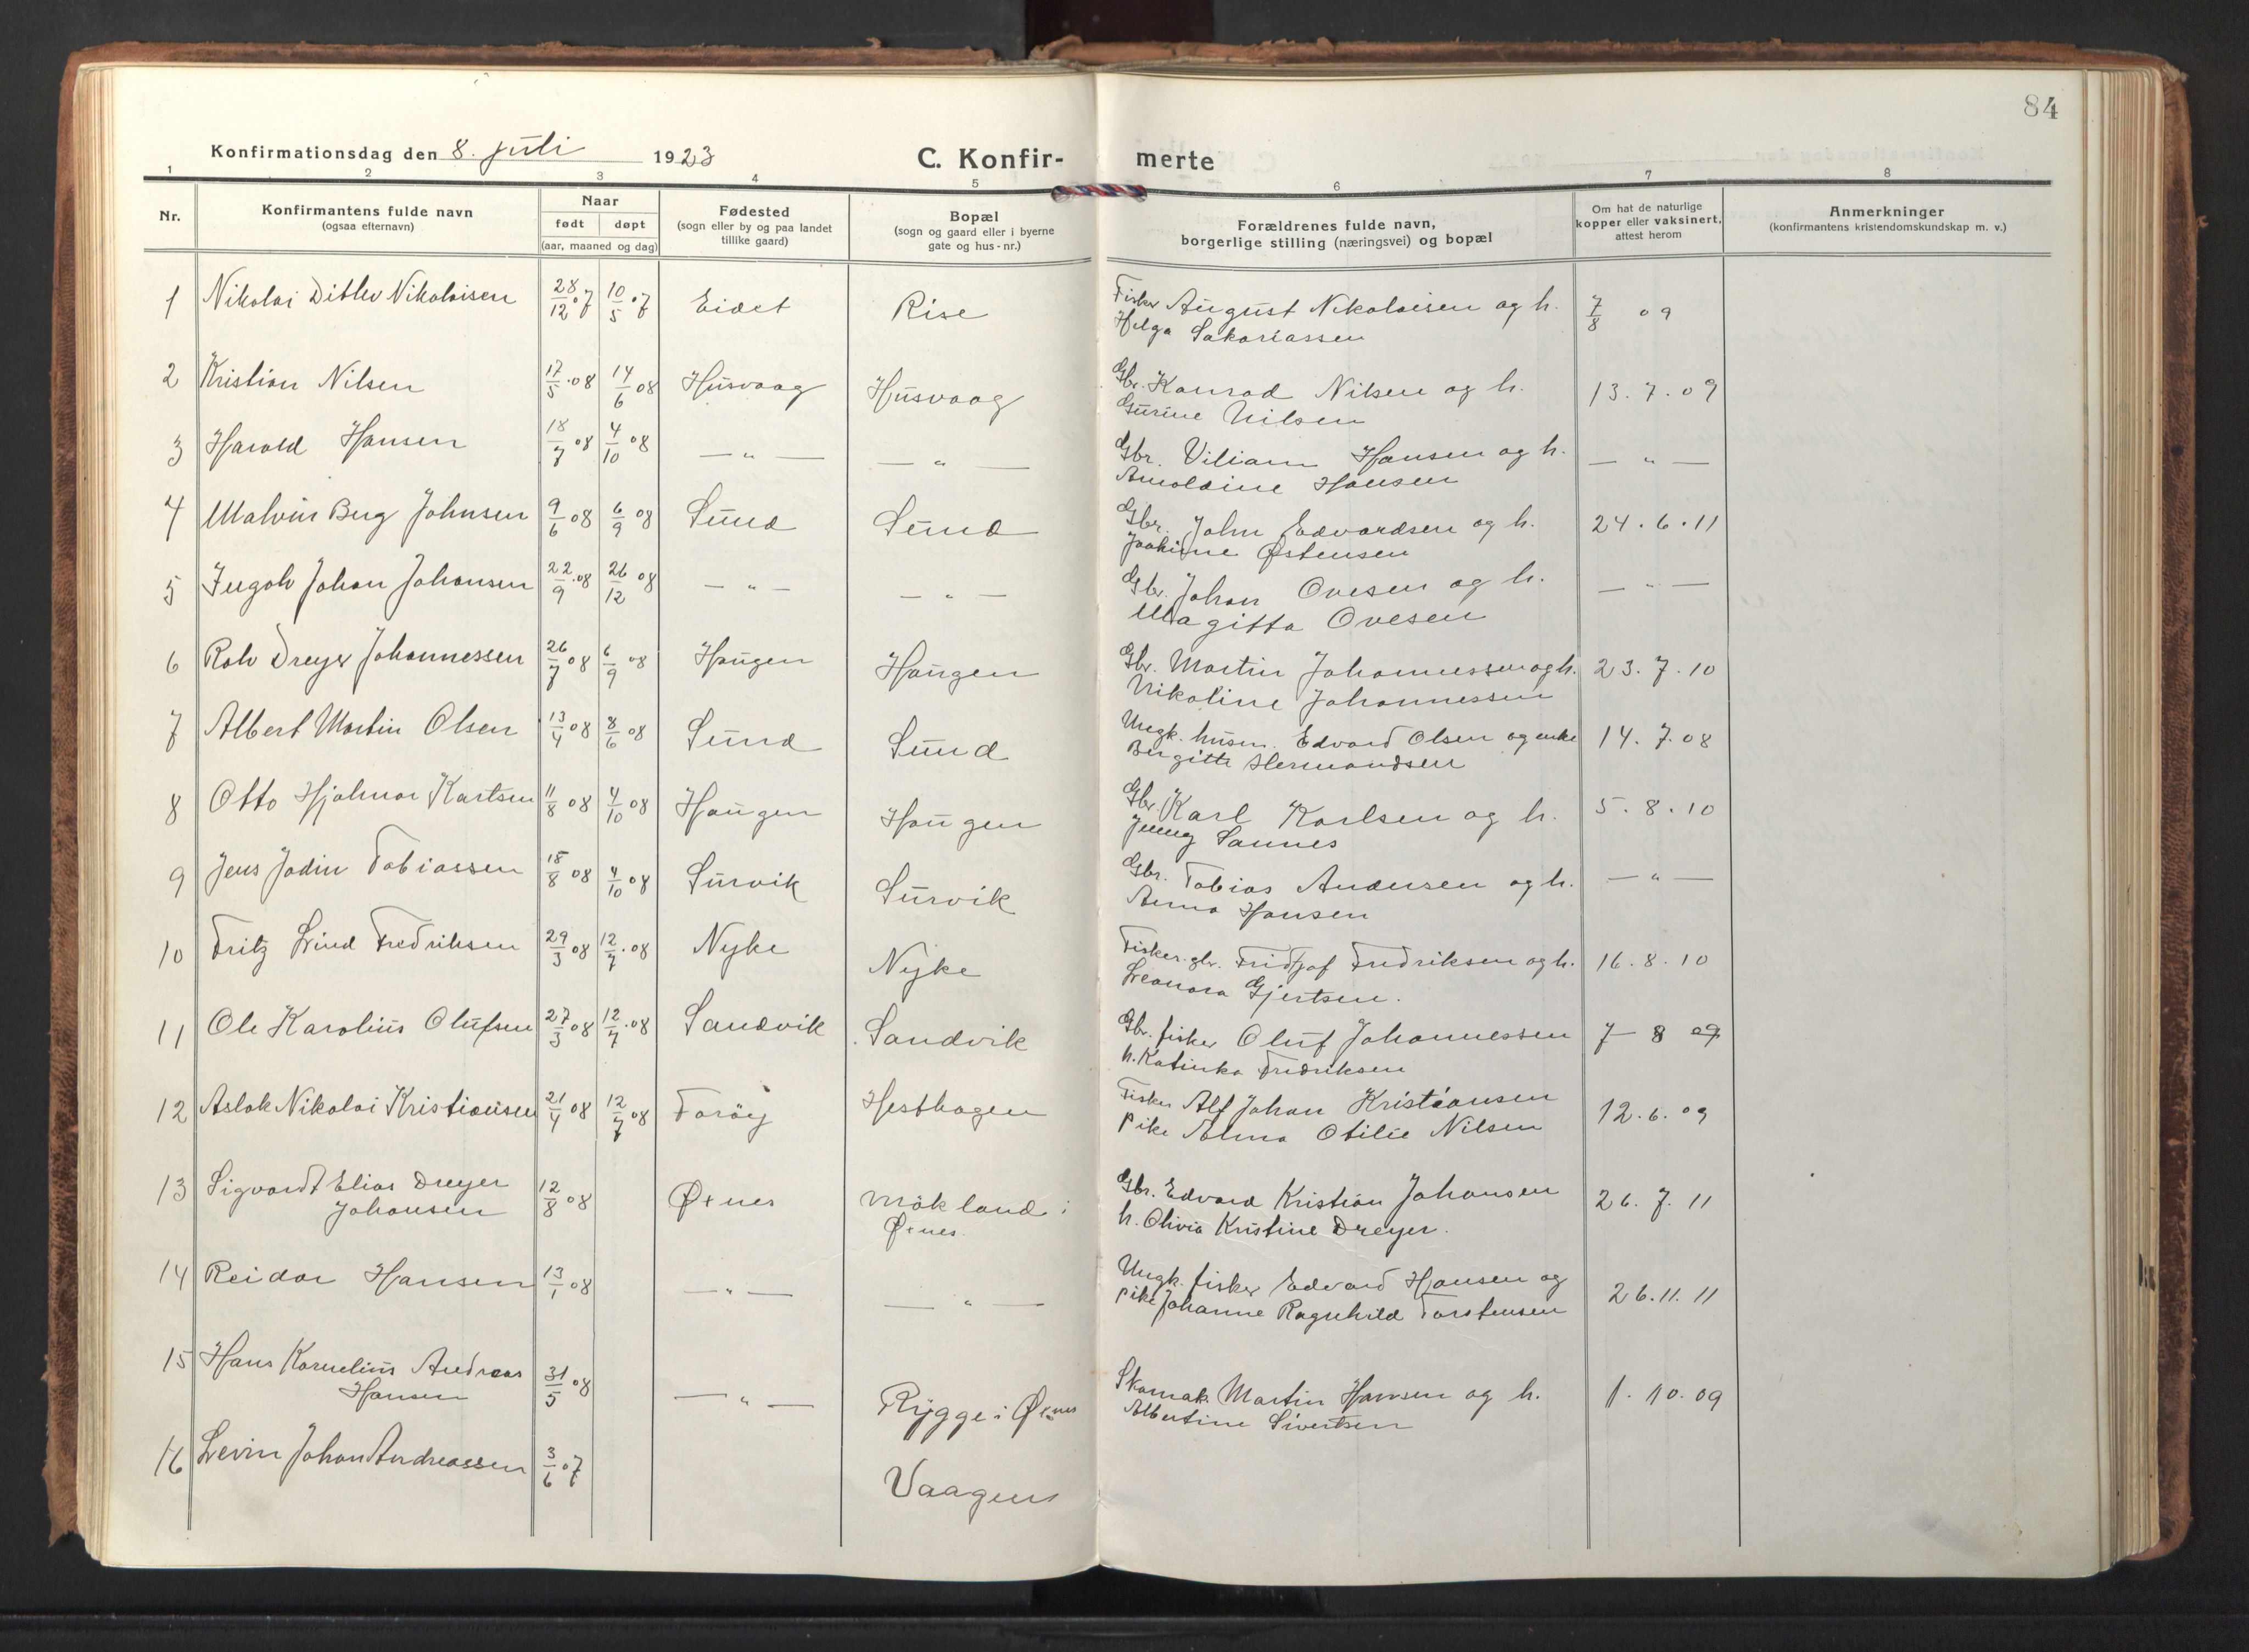 84
Konfirmationsdag den 8. juli 1923 C. Konfir- merte
1 2 3 4 5 6 7 8
Nr. Konfirmantens fulde navn (ogsaa efternavn) Naar født døpt (aar, maaned og dag) Fødested (sogn eller by og paa landet tillike gaard) Bopæl (sogn og gaard eller i byerne gate og hus-nr.) Forældrenes fulde navn, borgerlige stilling (næringsvei) og bopæl Om hat de naturlige kopper eller vaksinert, attest herom Anmerkninger (konfirmantens kristendomskundskap m. v.)
1 Nikolai Ditlev Nikolaisen 28/12 07 10/5 07 Eidet Rise Fisker August Nikolaisen og h. 7/8 09
Helga Sakariassen
2 Kristian Nilsen 17/5 08 14/6 08 Husvaag Husvaag Gbr. Konrad Nilsen og h. 13.7.09
Gurine Nilsen
3 Harald Hansen 18/7 08 4/10 08 — " — — " — Gbr. Viliam Hansen og h. — " —
Arnoldine Hansen
4 Malvin Berg Johnsen 9/6 08 6/9 08 Sund Sund Gbr. John Edvardsen og h. 24.6.11
Joakime Østensen
5 Johan Johansen 22/9 08 26/12 08 — " — — " — Gbr. Johan Ovesen og h. — " —
Magitta Ovesen
6 Rolv Dreyer Johannessen 26/7 08 6/9 08 Haugen Haugen Gbr. Martin Johannessen og h. 23.7.10
Nikoline Johannessen
7 Albert Martin Olsen 13/4 08 8/6 08 Sund Sund Ungk. husm. Edvard Olsen og enke 14.7.08
Bergitte Hermandsen
8 Otto Hjalmar Karlsen 11/8 08 4/10 08 Haugen Haugen Gbr. Karl Karlsen og h. 5.8.10
Jenny Sannes
9 Jens Jodin Tobiassen 15/8 08 4/10 08 Survik Survik Gbr. Tobias Andersen og h. — " —
Anna Hansen
10 Fritz Lind Fredriksen 29/3 08 12/7 08 Nyke Nyke Fisker. gbr. Fridtjof Fredriksen og h. 16.8.10
Leonora Gjertsen.
11 Ole Karolius Olufsen 27/3 08 12/7 08 Sandvik Sandvik Gbr. fisker Oluf Johannessen 7-8 09
h. Katinka Fredriksen
12 Aslak Nikolai Kristiansen 21/4 08 12/7 08 Forøy Hesthagen Fisker Alf Johan Kristiansen 12.6.09
pike Alma Otilie Nilsen
13 Sigvardt Elias Dreyer 12/8 08 Øxnes Mökland i Gbr. Edvard Kristian Johansen 26.7.11
Johansen Øxnes. h. Olivia Kristine Dreyer.
14 Reidar Hansen 13/1 08 — " — — " — Ungk. fisker Edvard Hansen og 26.11.11
pike Johanne Ragnhild Torstensen
15 Hans Kornelius Andreas 31/5 08 — " — Rygge i Øxnes Skomak. Martin Hansen og h. 1.10.09
Hansen Albertine Sivertsen
16 Levin Johan Andreassen 3/6 07 Vaagen